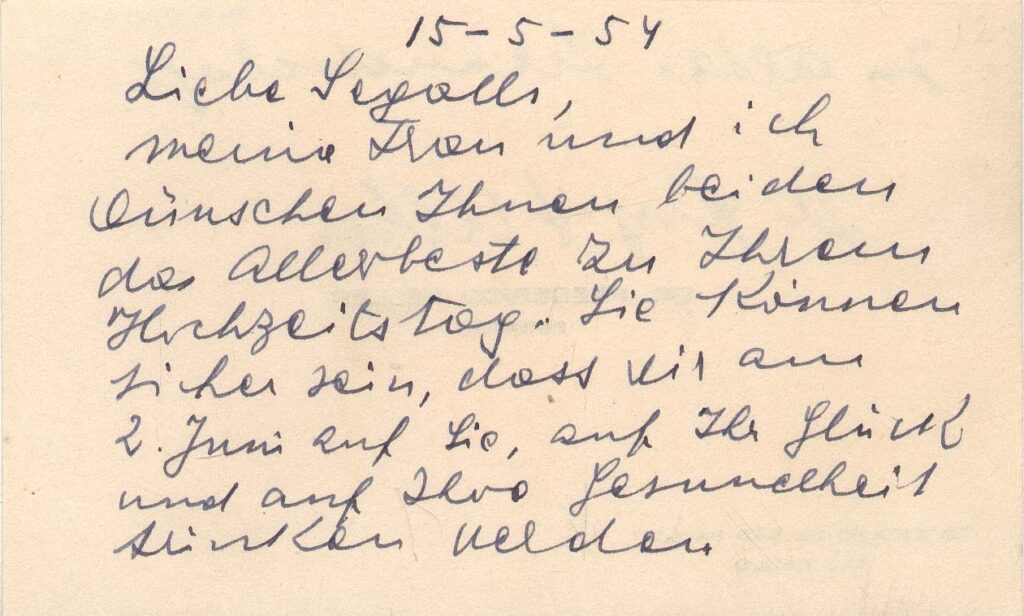 15-5-54
Liebe Segalls,
meine Frau und ich
wünschen Ihnen beiden
das Allerbeste zu Ihrem
Hochzeitstag. Sie können
sicher sein, dass wir am
2. Juni auf Sie, auf Ihr Glück
und auf Ihre Gesundheit
trinken werden